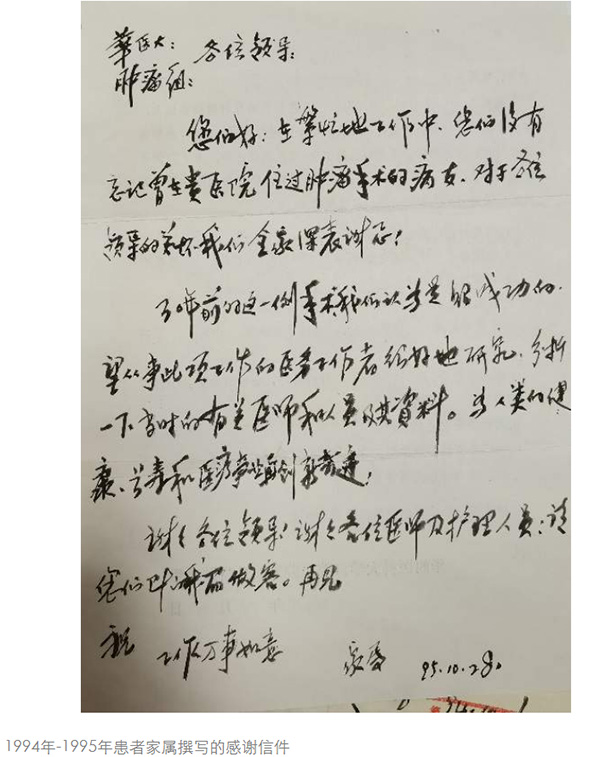 華医大: 各位领导:
肿瘤组:
您们好: 在繁忙地工作中, 您们没有
忘记曾在贵医院住过肿瘤手术的病友, 对于各位
领导的关怀我们全家深表谢忘!
年前的这一例手术我们认为是 成功的.
望从事此项工作的医务工作者很好地研究, 分折
一下当时的有关医师和人员及其資料。为人类的健
康、长寿和医疗事业 创新
谢谢各位领导! 谢谢各位医师及护理人员; 请
您们 做客。再见
祝 工作万事如意 95.10.28
1994年-1995年患者家属撰写的感谢信件